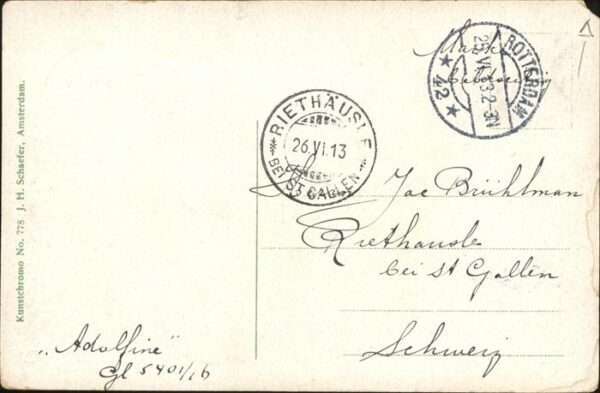 Kunstchromo No. 775 J. H. Schaefer, Amsterdam.
ROTTERDAM
42
RIETHÄUSLE
26.VI.13
BEI ST. GALLEN
Joe Brühlman
Riethausle
bei St Gallen
Schweiz
„Adolfine"
Gl 5401/16